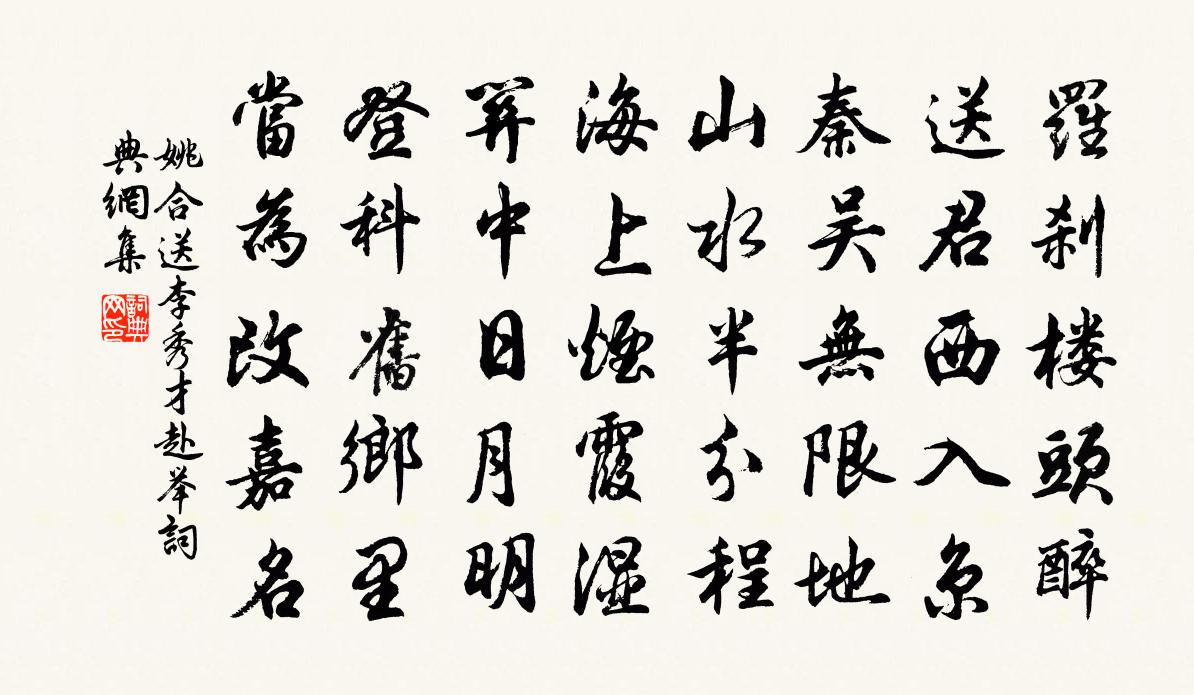 羅剎楼頭醉
送君西入京
秦吴無限地
山水半分程
海上煙霞湿
關中日月明
登科舊鄉里
當為改嘉名
姚合送李秀才赴举詞
典網集
詞典网印